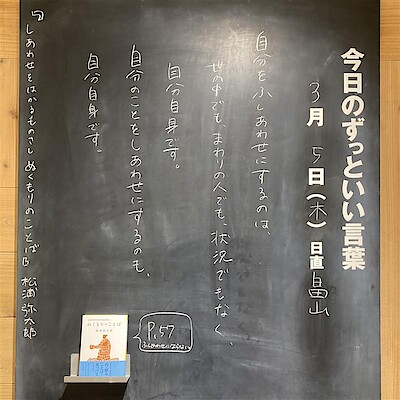 今日のずっといい言葉
3月 5日(木) 日直 畠山
自分をふしあわせにするのは、
世の中でも、まわりの人でも、状況でもなく、
自分自身です。
自分のことをしあわせにするのも、
自分自身です。
『しあわせをはかるものさし ぬくもりのことば』 松浦弥太郎
P.57